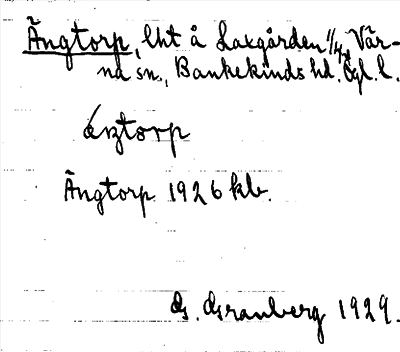 Ängtorp, lht å Laxgården 1/4, Vår-
na sn., Bankekinds hd. Ögl. l.
áŋtorp
Ängtorp 1926 kb.
G. Granberg 1929.